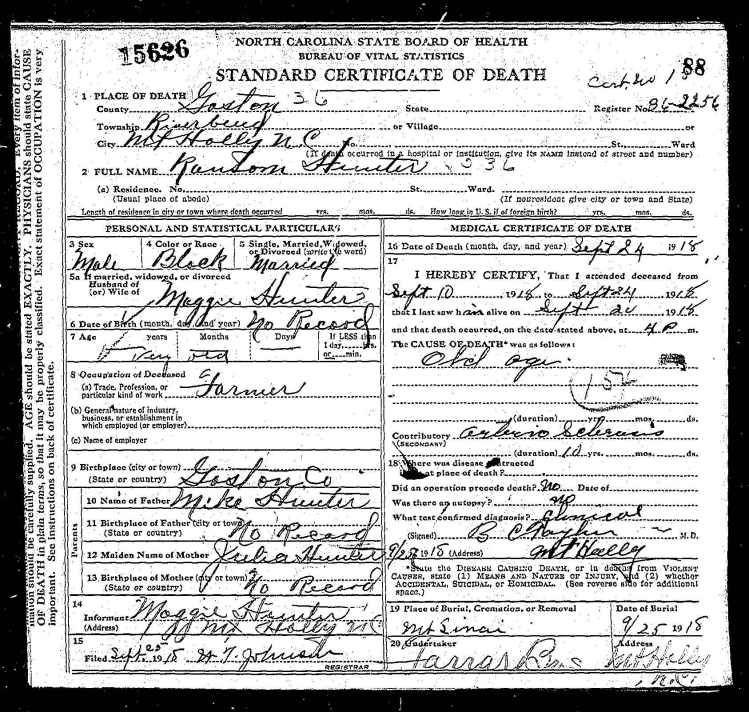 15626
NORTH CAROLINA STATE BOARD OF HEALTH
BUREAU OF VITAL STATISTICS
STANDARD CERTIFICATE OF DEATH
88
Cert. No
1 PLACE OF DEATH
County Gaston 36 State Register No. 36-2256
Township Riverbend or Village or
City Mt Holly N.C. No. St. Ward
(If death occurred in a hospital or institution, give its NAME instead of street and number)
2 FULL NAME Ransom Hunter 536
(a) Residence. No. St. Ward.
(Usual place of abode) (If nonresident give city or town and State)
Length of residence in city or town where death occurred yrs. mos. ds. How long in U. S. if of foreign birth? yrs. mos. ds.
PERSONAL AND STATISTICAL PARTICULARS
3 Sex 4 Color or Race 5 Single, Married, Widowed, or Divorced (write the word)
Male Black Married
5a If married, widowed, or divorced
Husband of
(or) Wife of Maggie Hunter
6 Date of Birth (month, day, and year) No Record
7 Age years Months Days If LESS than 1 day, hrs. or min.
Very old
8 Occupation of Deceased
(a) Trade, Profession, or particular kind of work Farmer
(b) General nature of industry, business, or establishment in which employed (or employer)
(c) Name of employer
9 Birthplace (city or town)
(State or country) Gaston Co
10 Name of Father Mike Hunter
11 Birthplace of Father (city or town)
(State or country) No Record
12 Maiden Name of Mother Julia Hunter
13 Birthplace of Mother (city or town)
(State or country) No Record
Parents
14
Informant Maggie Hunter
(Address) Mt Holly N C
15
Filed Sept 25 1918 W. T. Johnson
REGISTRAR
MEDICAL CERTIFICATE OF DEATH
16 Date of Death (month, day, and year) Sept 24 1918
17
I HEREBY CERTIFY, That I attended deceased from
Sept 10 1918 to Sept 24 1918
that I last saw him alive on Sept 20 1918
and that death occurred, on the date stated above, at 4 P m.
The CAUSE OF DEATH* was as follows:
Old age
154
(duration) yrs. mos. ds.
Contributory Arterio Sclerosis
(SECONDARY)
(duration) 10 yrs. mos. ds.
18 Where was disease contracted
if not at place of death?
Did an operation precede death? No Date of
Was there an autopsy? No
What test confirmed diagnosis? Clinical
(Signed) B C M.D.
9/25 1918 (Address) Mt Holly
*State the DISEASE CAUSING DEATH, or in deaths from VIOLENT
CAUSES, state (1) MEANS AND NATURE OF INJURY, and (2) whether
ACCIDENTAL, SUICIDAL, or HOMICIDAL. (See reverse side for additional
space.)
19 Place of Burial, Cremation, or Removal Date of Burial
Mt Sinai 9/25 1918
20 Undertaker Address
Mt Holly
N.C.
mation should be carefully supplied. AGE should be stated EXACTLY. PHYSICIANS should state CAUSE
OF DEATH in plain terms, so that it may be properly classified. Exact statement of OCCUPATION is very
important. See instructions on back of certificate.